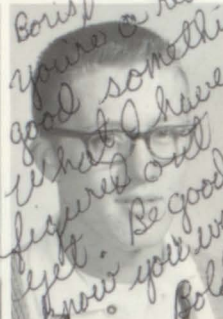 Boris!
you're a re
good somethi
what I have
figured out
yet. Be good
know you w
Bol